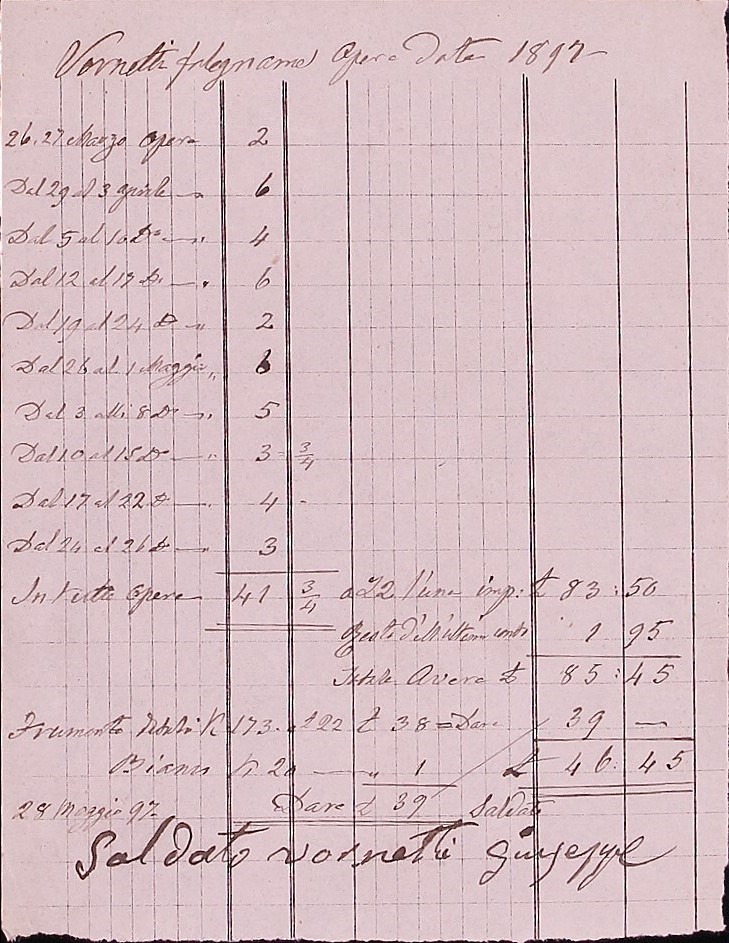 Vornetti falegname Opere date 1897
26. 27 Marzo opere 2
Dal 29 al 3 aprile " 6
Dal 5 al 10 Do " 4
Dal 12 al 17 Do " 6
Dal 19 al 24 Do " 2
Dal 26 al 1 Maggio " 6
Dal 3 alli 8 Do " 5
Dal 10 al 15 Do " 3 3/4
Dal 17 al 22 Do 4 -
Dal 24 al 26 Do 3
In tutto opere 41 3/4 a £ 2 l'una imp: £ 83:50
Resto dell'ultimo 1 95
Totale Avere £ 85:45
Frumento K 173. a £ 22 £ 38 = Dare 39 —
K 20 — " 1 £ 46:45
28 Maggio 97 Dare £ 39 Saldato
Saldato vornetti giuseppe